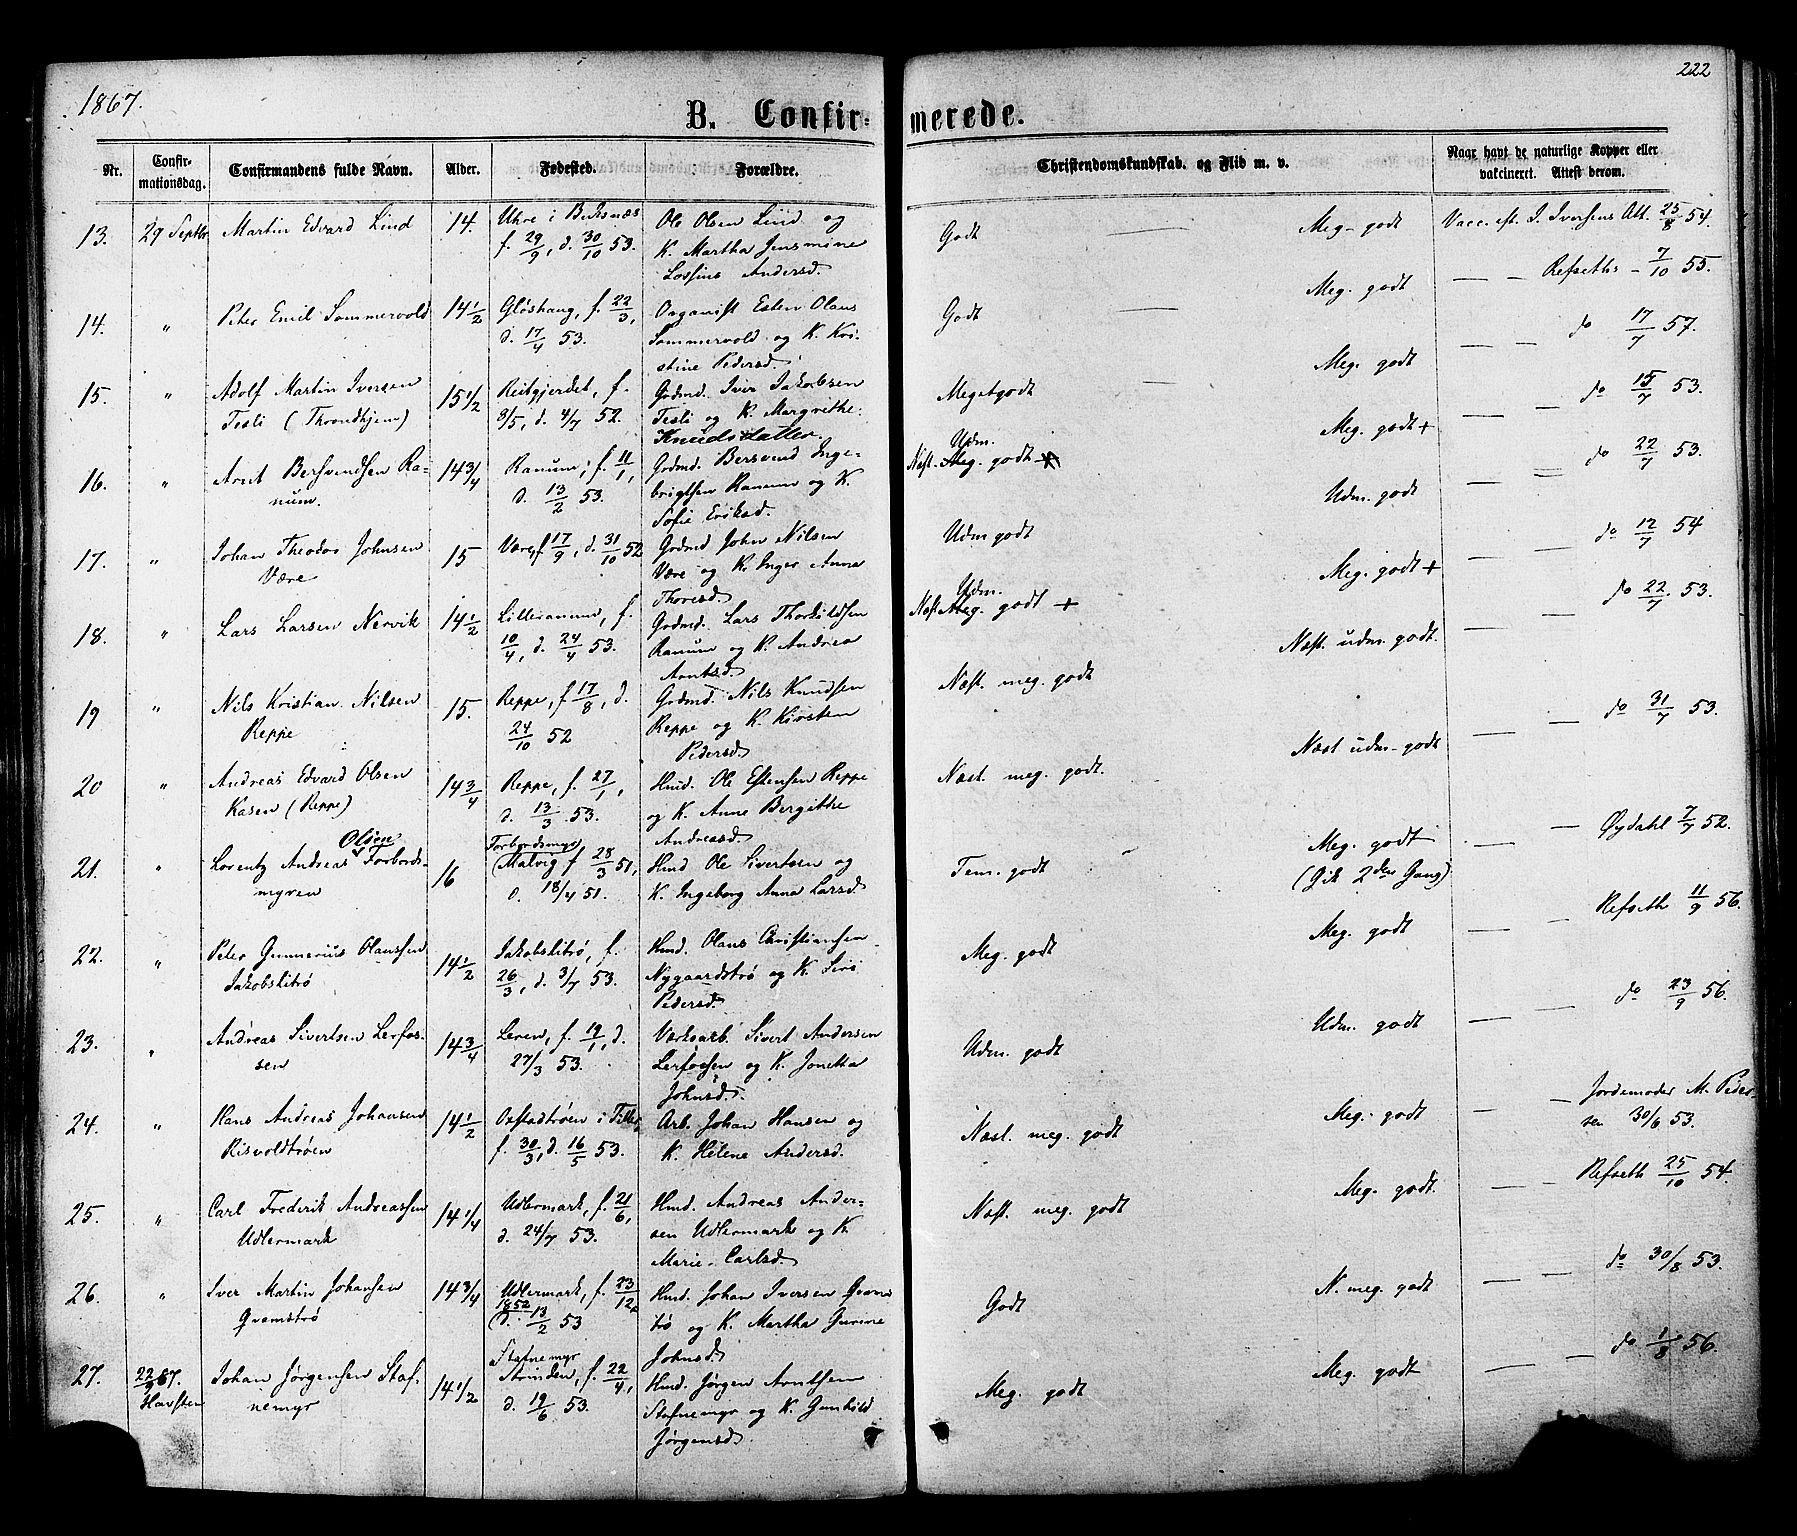 1867.
222
B. Confirmerede.
Nr. Confirmationsdag. Confirmandens fulde Navn. Alder. Fødested. Forældre. Christendomskundskab. og Flid m. v. Naar havt de naturlige Kopper eller vakcineret. Attest derom.
13. 29 Septbr Martin Edvard Lind 14. i Buksnæs Ole Olsen Lind og Godt — Meg- godt Vacc. eft. I. Iversens Att. 25/8 54.
f. 29/9, d. 30/10 53. K. Martha Jensmine
Andersd.
14. " Peter Emil Sommervold 14 1/2 Gløshaug, f. 22/3, Organist Esten Olaus Godt — Meg. godt — — Refseths - 7/10 55.
d. 17/4 53. Sommervold og K. Kristine Pedersd.
15. " Adolf Martin Iversen 15 1/2 f. Gdmd. Iver Jakobsen Megetgodt — Meg. godt — — do 17/7 57.
Tesli (Throndhjem) 8/5, d. 4/7 52. Tesli og K. Margrethe
Knudsdatter.
16. " Arnt Bersvendsen Ranum. 14 3/4 Ranum, f. 11/1, Gdmd. Bersvend Ingebrigtsen Ranum og K. Næst. Udm. godt Meg. godt + — — do 15/7 53.
d. 13/2 53. Sofie Eriksd.
17. " Johan Theodor Johnsen 15 Være, f. 17/9, d. 31/10 52 Gdmd John Nilsen Udm godt Udm. godt — — do 22/7 53.
Være Være og K. Inger Anna
Thoresd.
18. " Lars Larsen Nervik 14 1/2 Lilleranum, f. Gdmd. Lars Thorkildsen Næst. Udm. Meg. godt + Meg. godt + — — do 12/7 54
10/4, d. 24/4 53. Ranum og K. Andrea
Arntsd.
19 " Nils Kristian Nilsen 15. Reppe, f 17/8, d. Gdmd. Nils Knudsen Næst. meg. godt Næst. udm. godt. — — do 22/7. 53.
Reppe 24/10 52 Reppe og K. Kirsten
Pedersd.
20 " Andreas Edvard Olsen 14 3/4 Reppe, f. 27/1, Hmd. Ole Estensen Reppe Næst. meg. godt. Næst udm. godt — — do 31/7 53.
Kasen (Reppe) d. 13/3 53. og K. Anne Bergitthe
Andreasd.
21. " Lorentz Andreas Olsen Forbordsmyren 16 Forbordsmyr Hmd Ole Sivertsen og Tem. godt Meg. godt — — Øydahl 7/7 52.
(Malvig f 28/3 51, K. Ingeborg Anna Larsd. (Gik 2den Gang)
d. 18/4 51.
22. " Peter Gunnerius Olaussen 14 1/2 Jakobslitrø, f. Hmd. Olaus Christiansen Meg. godt Meg. godt — — Refseth 11/9 56.
Jakobslitrø 26/3, d. 3/7 53. Nygaardstrø og K. Siri
Pedersd.
23. " Andreas Sivertsen Lerfossen 14 3/4 Leren, f. 19/1, d. Værksarb. Sivert Andersen Udm. godt Udm. godt — — do 23/9 56.
27/3 53. Lerfossen og K. Jonetta
Johnsd.
24. " Hans Andreas Johansen 14 1/2 i Tiller, Arb. Johan Hansen og Næst. meg. godt Meg. godt — — Jordemoder M. Pedersen 30/6 53.
Risvoldtrøen f. 30/3, d. 16/5 53. K. Helene Andersd.
25. " Carl Frederik Andreassen 14 1/4 Udlermark, f. 21/6, Hmd. Andreas Andersen Udlermark og K. Næst. meg. godt Meg. godt. — — Refseth 25/10 54.
Udlermark d. 24/7 53. Marie Carlsd.
26. " Iver Martin Johansen 14 3/4 Udlermark, f. 23/12 Hmd. Johan Iversen Godt N. meg. godt — — do 30/8 53.
Qvamstrø 1852 d. 13/2 53 og K. Martha Gurine
Johnsd.
27. 22/9 67. Johan Jørgensen Stafnemyr 14 1/2 Stafnemyr Hmd. Jørgen Arntsen Meg. godt Meg. godt — — do 1/8 56.
Havsten Strinden, f. 22/4, Stafnemyr og K. Gunhild
d. 19/6 53. Jørgensd.